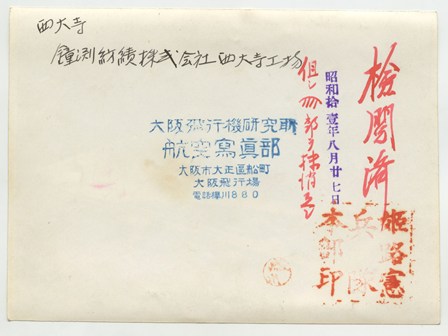 西大寺
鐘渕紡績株式会社西大寺工場
大阪飛行機研究所
航空寫眞部
大阪市大正區船町
大阪飛行場
電話櫻川880
檢閲済
昭和拾壹年八月廿七日
姫路憲
兵隊
本部印